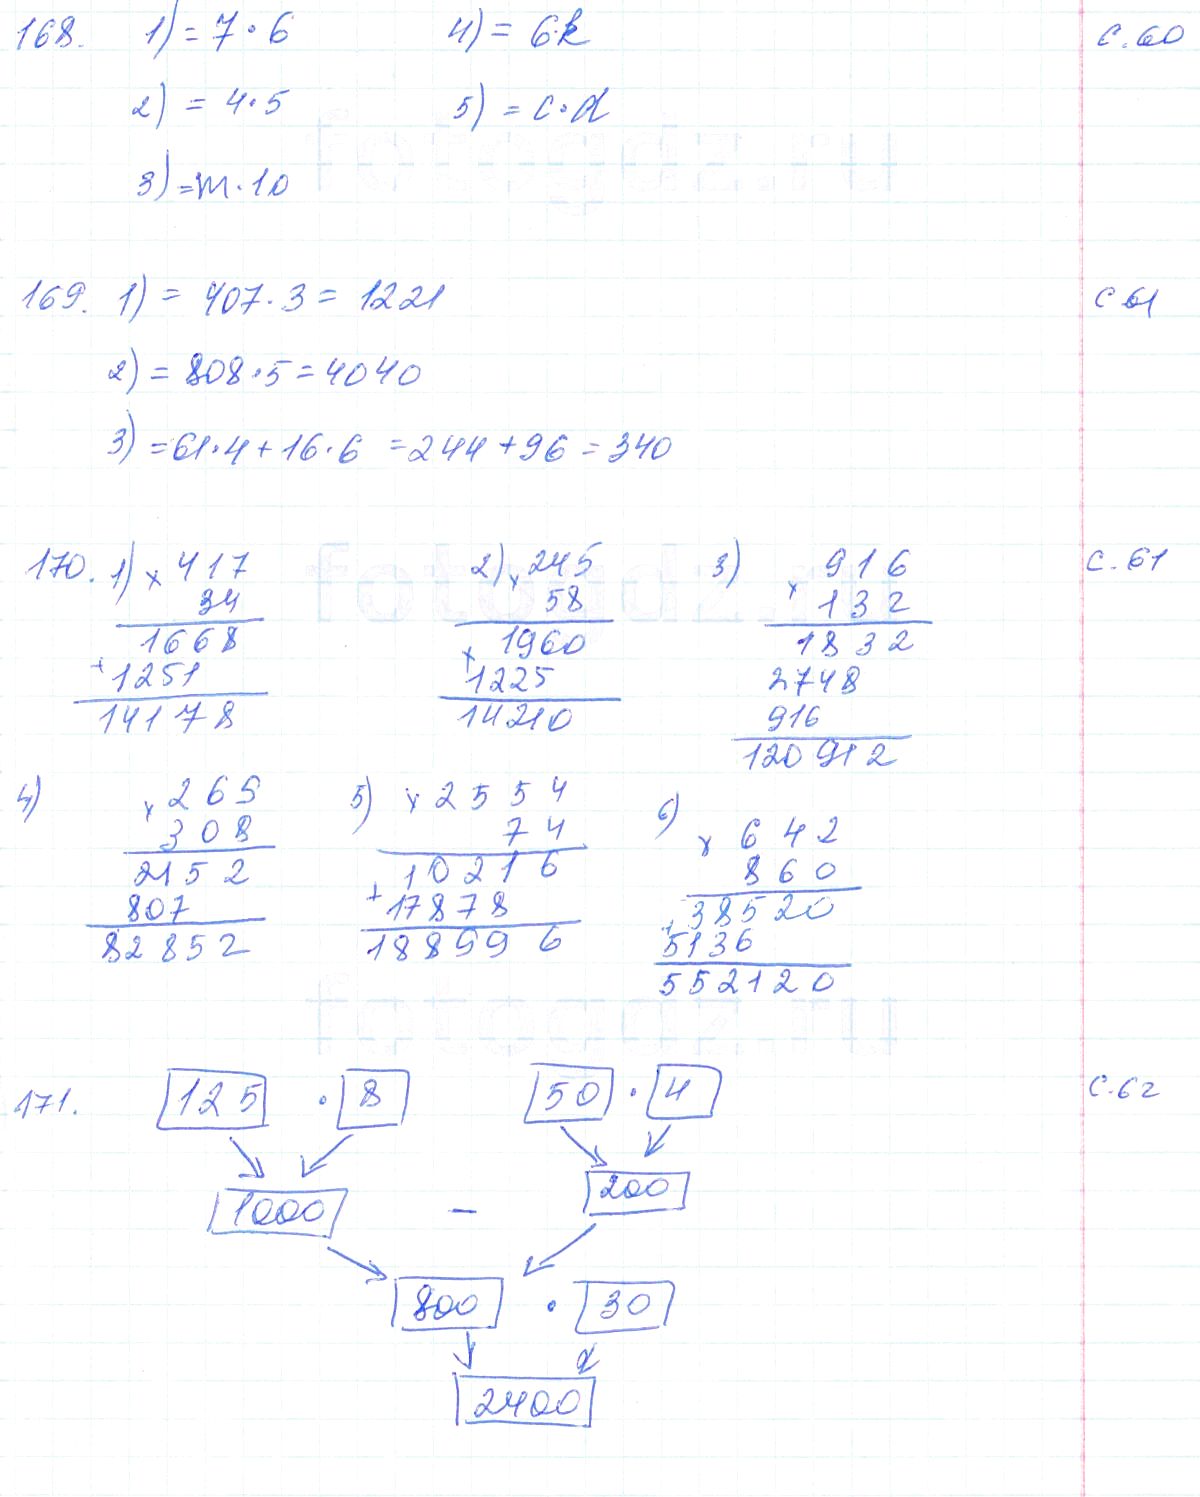 168. 1) = 7·6 4) = 6·k с. 60
2) = 4·5 5) = c·d
3) = m·10
fotogdz.ru
169. 1) = 407·3 = 1221 с 61
2) = 808·5 = 4040
3) = 61·4 + 16·6 = 244 + 96 = 340
170. 1) × 417 2) × 245 3) × 916 с. 61
34 58 132
1668 1960 1832
+ 1251 × 1225 2748
14178 14210 916
120912
fotogdz.ru
4) × 269 5) × 2554 6) × 642
308 74 860
2152 10216 38520
807 + 17878 + 5136
82852 188996 552120
fotogdz.ru
171. 125 · 8 50 · 4 с. 62
1000 – 200
800 · 30
2400